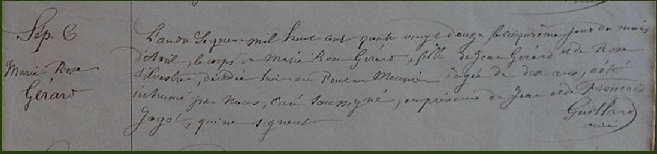 Sep. 6
Marie Rose
Gérard
L'an du Seigneur mil huit cent quatre vingt douze le cinquième jour du mois
d'Avril, le corps de Marie Rose Gérard, fille de Jean Gérard et de Rose
Silvestre, décédée hier au Pont au Meunier âgée de dix ans, a été
inhumé par Nous, Curé Soussigné, en présence de Jean et de François
Jagot, qui ne signent
Guillard